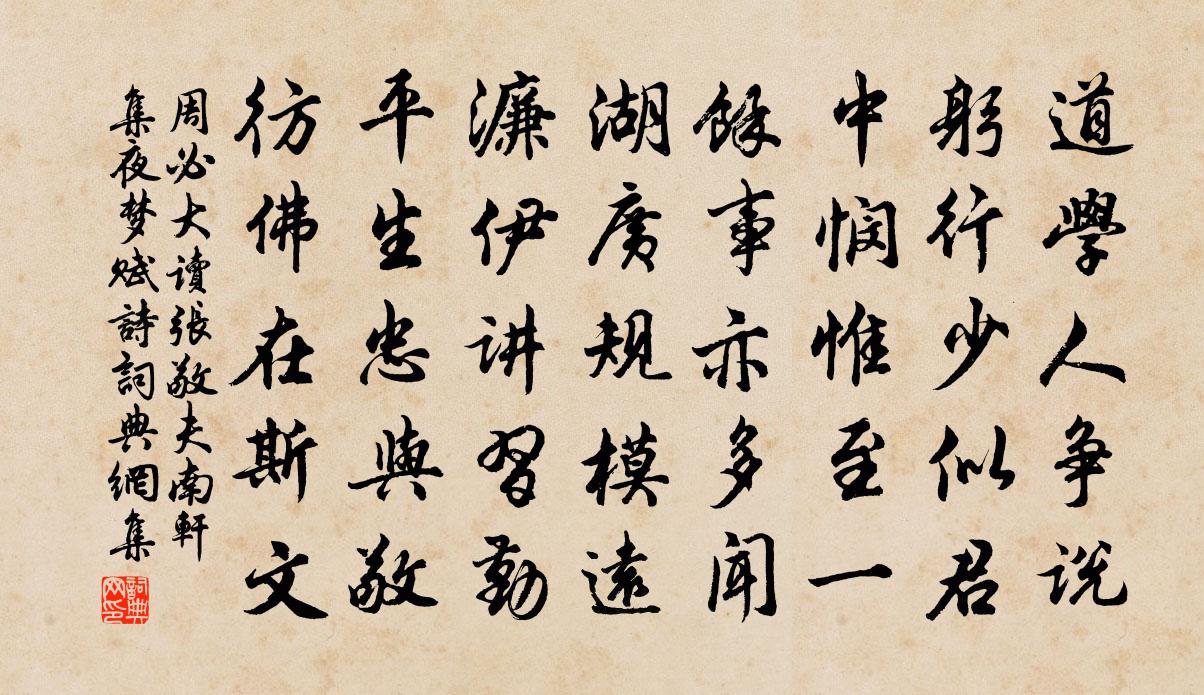 道學人争说
躬行少似君
中悃惟至一
餘事亦多闻
湖廣規模遠
濂伊讲習勤
平生忠與敬
彷佛在斯文
周必大讀張敬夫南軒
集夜梦赋詩詞典網集
詞典
网印